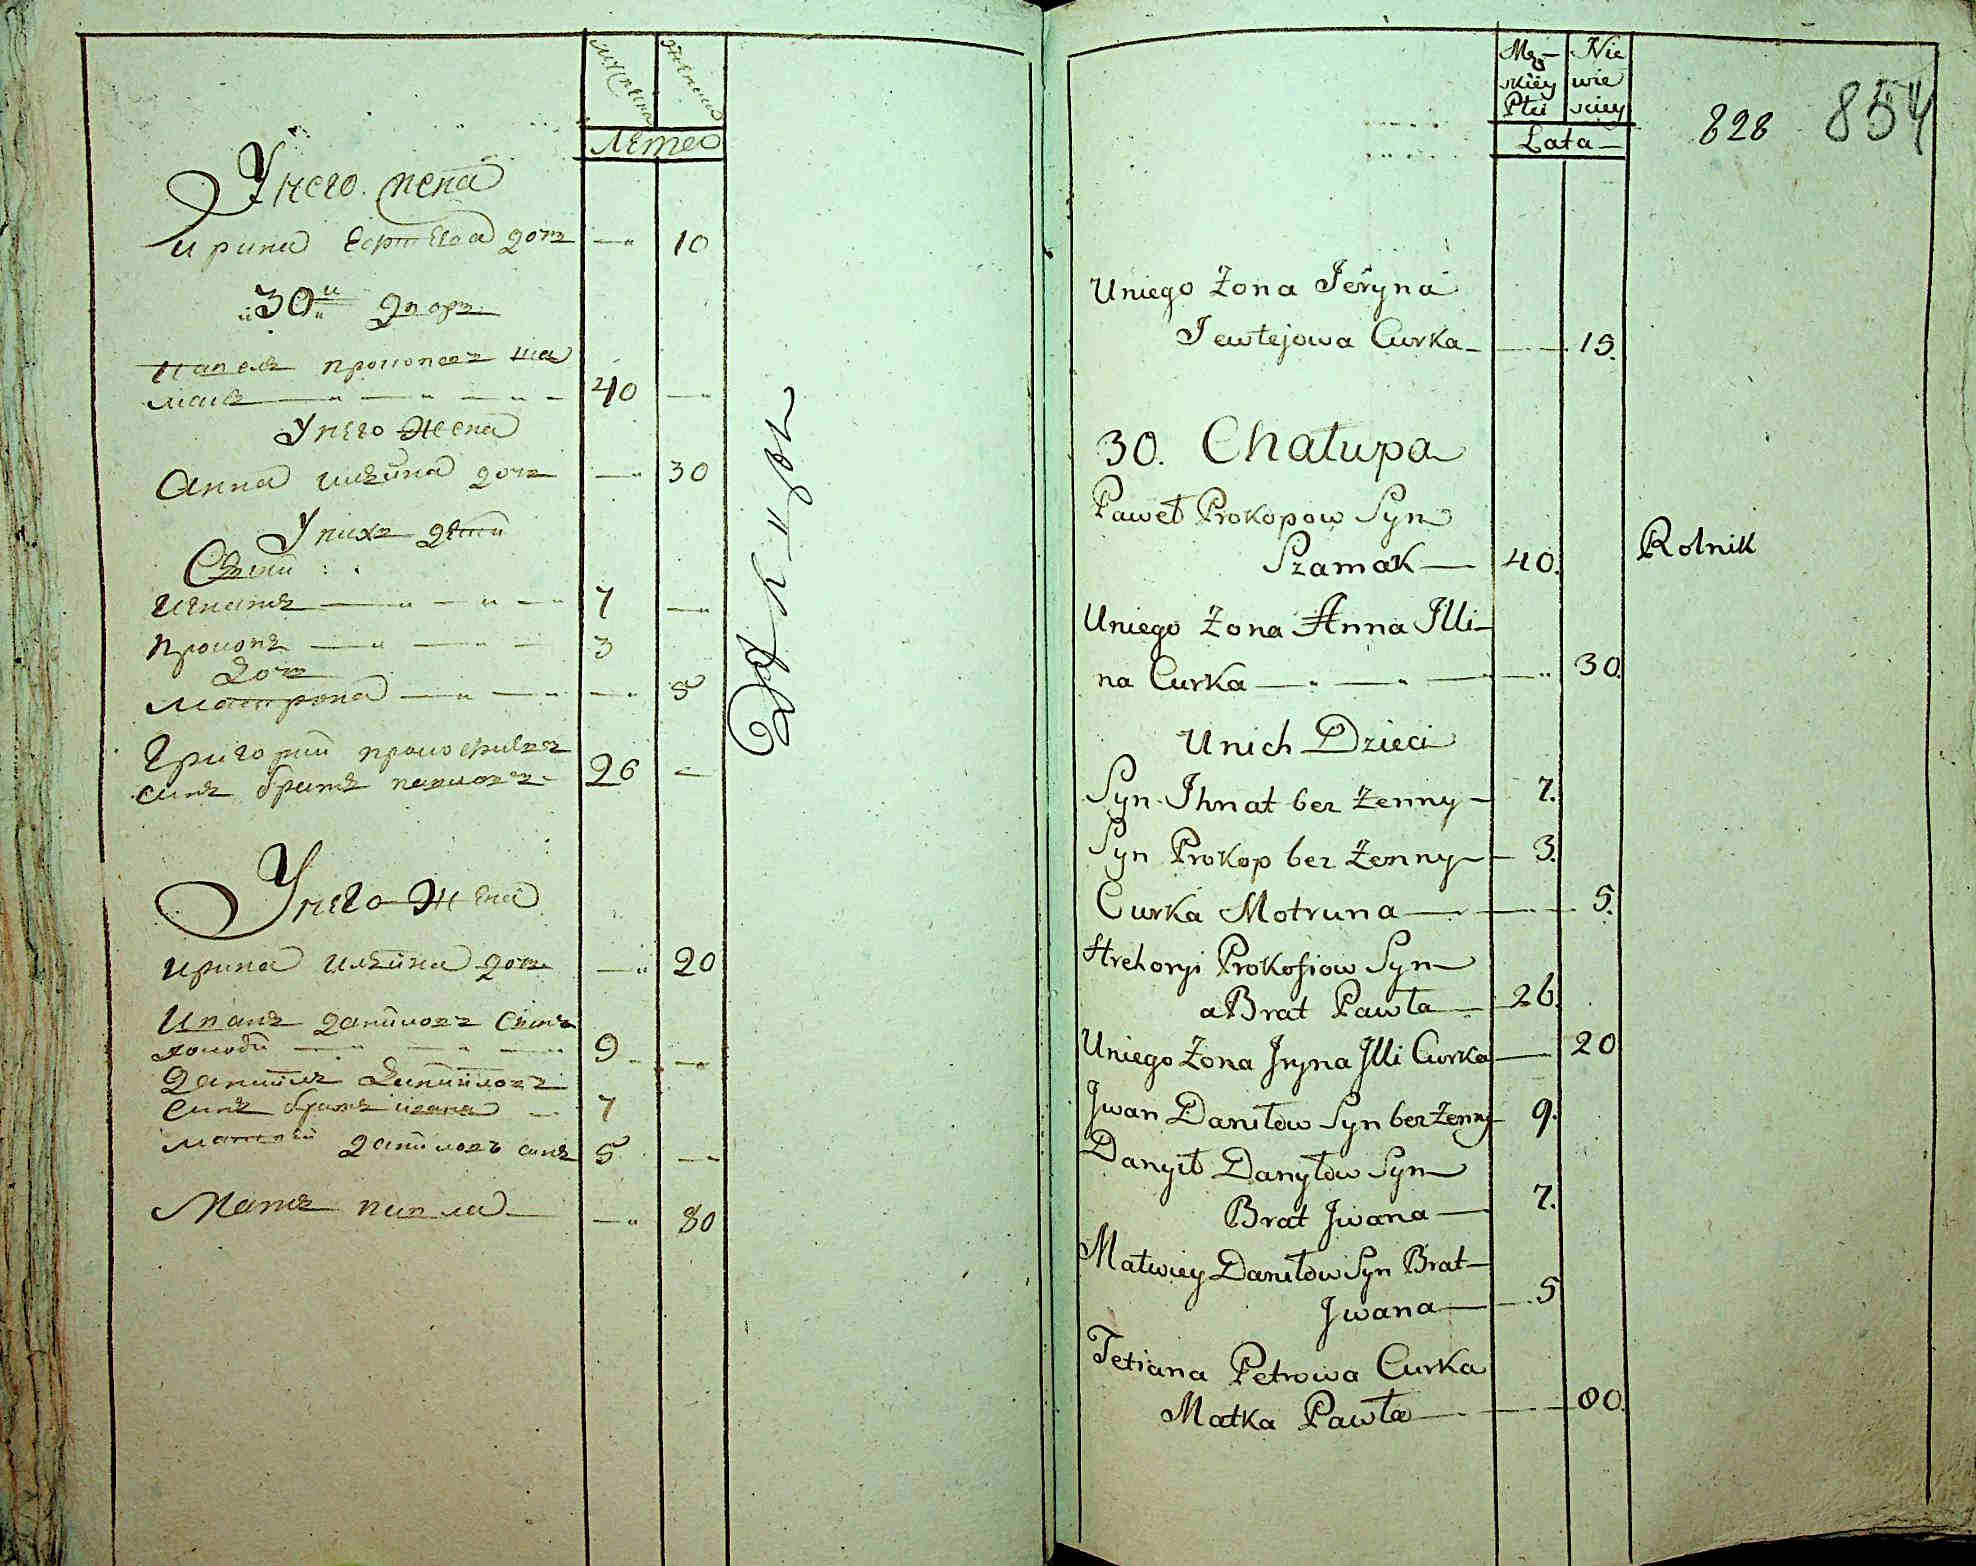 Летa
У него жена
Ирина Евртеева дочь — 10
30й двор
Павель Прокопов ша
мак — 40 —
У него жена
Анна Ильина дочь — 30
У них дети
Игнатъ — 7 —
Прокопъ — 3
дочь
Матрона — 5
Григорий
синъ братъ Павловъ 26 —
У него жена
Ирина Ильина дочь — 20
Иванъ Даниловъ синъ
9 —
Данилъ Даниловъ
синъ братъ Ивана — 7
Матвій Даниловъ синъ 5 —
Мать Павла — 80
Męz- Nie
skiey wie
Płci sciey
Lata
828 854
Uniego Żona Jeryna
Jewtejowa Curka — 15.
30. Chałupa
Paweł Prokopow Syn
Szamak — 40. Rolnik
Uniego Żona Anna Illi-
na Curka — 30.
Unich Dzieci
Syn Ihnat bez Żenny — 7.
Syn Prokop bez Żenny — 3.
Curka Motruna — 5.
Hrehoryi Prokofiow Syn
a Brat Pawła — 26.
Uniego Żona Jryna Jlli Curka — 20
Jwan Daniłow Syn bez Żenny — 9.
Danyił Danyłow Syn
Brat Jwana — 7.
Matwiey Daniłow Syn Brat
Jwana — 5
Tetiana Petrowa Curka
Matka Pawła — 80.